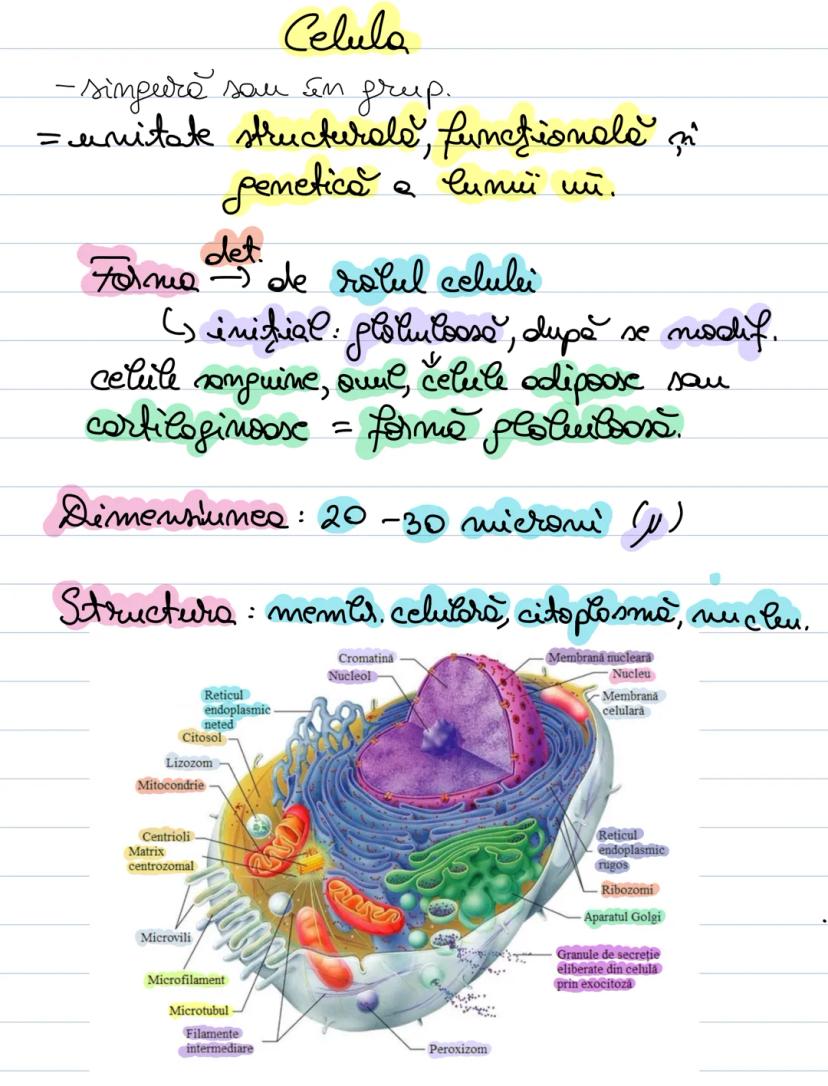 Celula
- singură sau în grup.
= unitate structurală, funcțională și
genetică a lumii vii.
det.
Forma → de rolul celulei
↳ inițial: globuloasă, după se modif.
↓
celule sanguine, ovul, celule adipoase sau
cartilaginoase = formă globuloasă.
Dimensiunea: 20 - 30 microni (µ)
Structura: membr. celulară, citoplasmă, nucleu.
Cromatină
Membrană nucleară
Nucleol
Nucleu
Reticul
endoplasmic
neted
Membrană
celulară
Citosol
Lizozom
Mitocondrie
Centrioli
Matrix
centrozomal
Reticul
endoplasmic
rugos
Ribozomi
Aparatul Golgi
Microvili
Granule de secreție
eliberate din celulă
prin exocitoză
Microfilament
Microtubul
Filamente
intermediare
Peroxizom